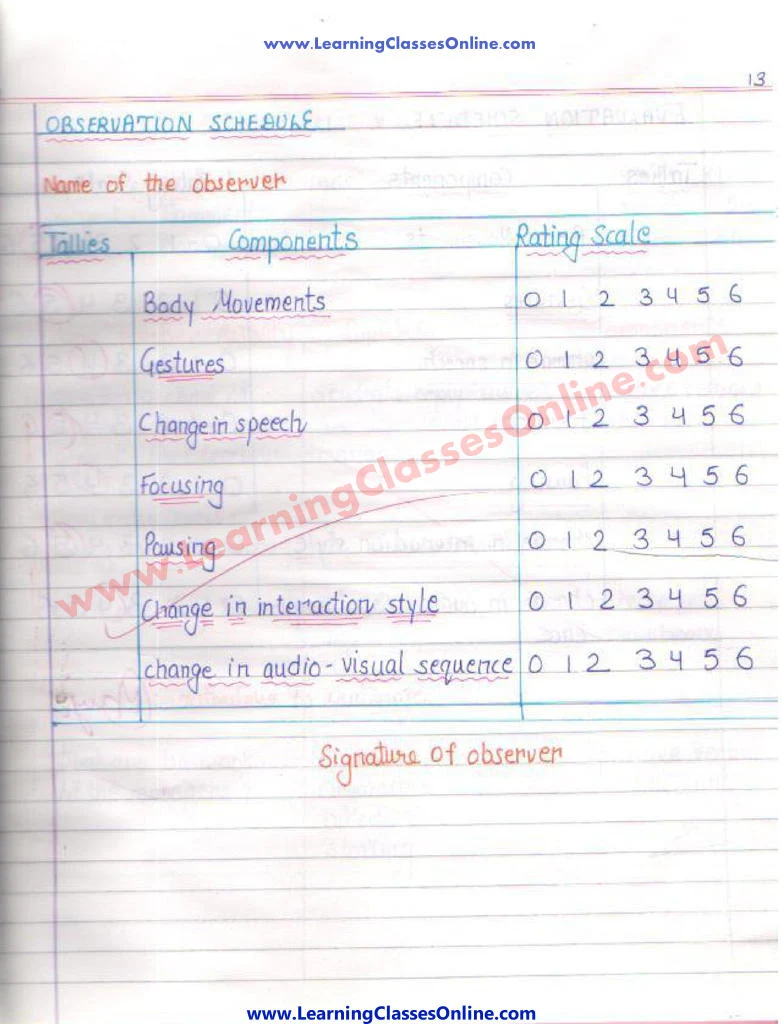 www.LearningClassesOnline.com
13
OBSERVATION SCHEDULE
Name of the observer
Tallies Components Rating Scale
Body Movements 0 1 2 3 4 5 6
Gestures 0 1 2 3 4 5 6
Change in speech 0 1 2 3 4 5 6
Focusing 0 1 2 3 4 5 6
Pausing 0 1 2 3 4 5 6
www.LearningClassesOnline.com
Change in interaction style 0 1 2 3 4 5 6
change in audio - visual sequence 0 1 2 3 4 5 6
Signature of observer
www.LearningClassesOnline.com